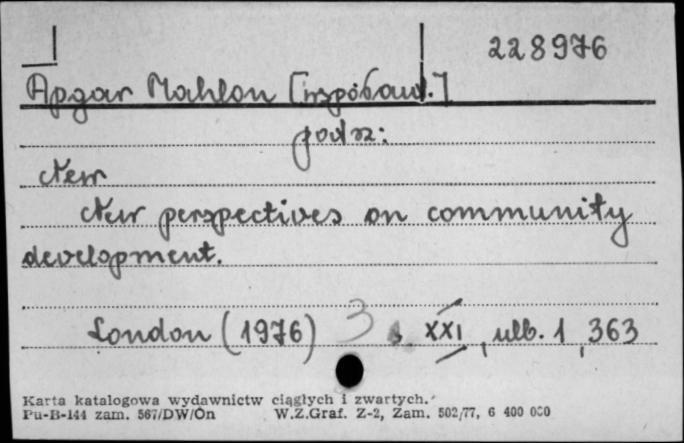 228976
Apgar Mahlon [współaut.]
podsz:
New
New perspectives on community
development.
London (1976) 3 s. XXI, ulb. 1, 363
Karta katalogowa wydawnictw ciągłych i zwartych.
Pu-B-144 zam. 567/DW/On W.Z.Graf. Z-2, Zam. 502/77, 6 400 000